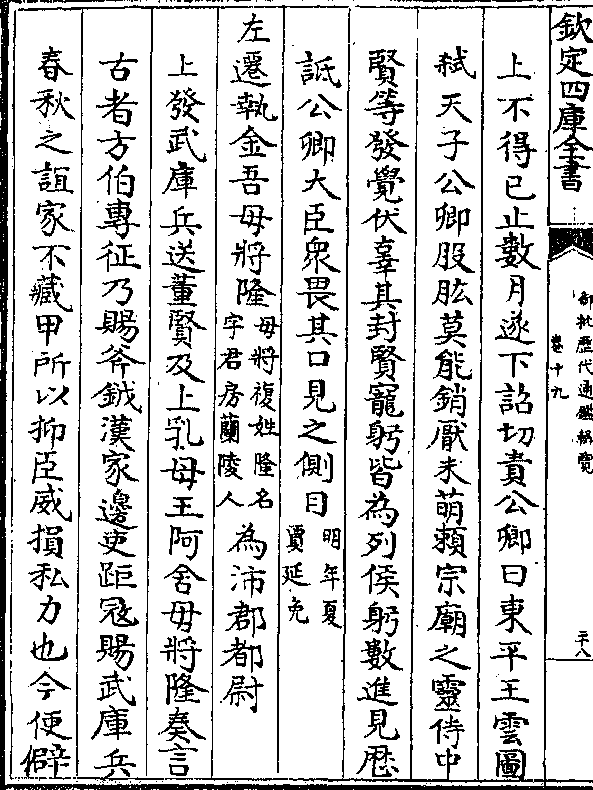 欽定四庫全書
御批歷代通鑑輯覽
卷十九
二十八
上不得已止數月遂下詔切責公卿曰東平王雲圖
弑天子公卿股肱莫能銷厭未萌賴宗廟之靈侍中
賢等發覺伏辜其封賢寵躬皆為列侯躬數進見歴
詆公卿大臣衆畏其口見之側目明年夏賈延免
左遷執金吾毋將隆毋將複姓隆名字君房蘭陵人為沛郡都尉
上發武庫兵送董賢及上乳母王阿舍毋將隆奏言
古者方伯專征乃賜斧鉞漢家邊吏距冦賜武庫兵
春秋之誼家不藏甲所以抑臣威損私力也今便僻